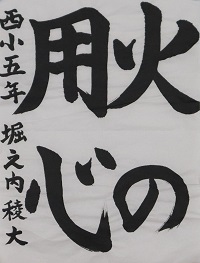 火の
用心
西小五年 堀之内稜大